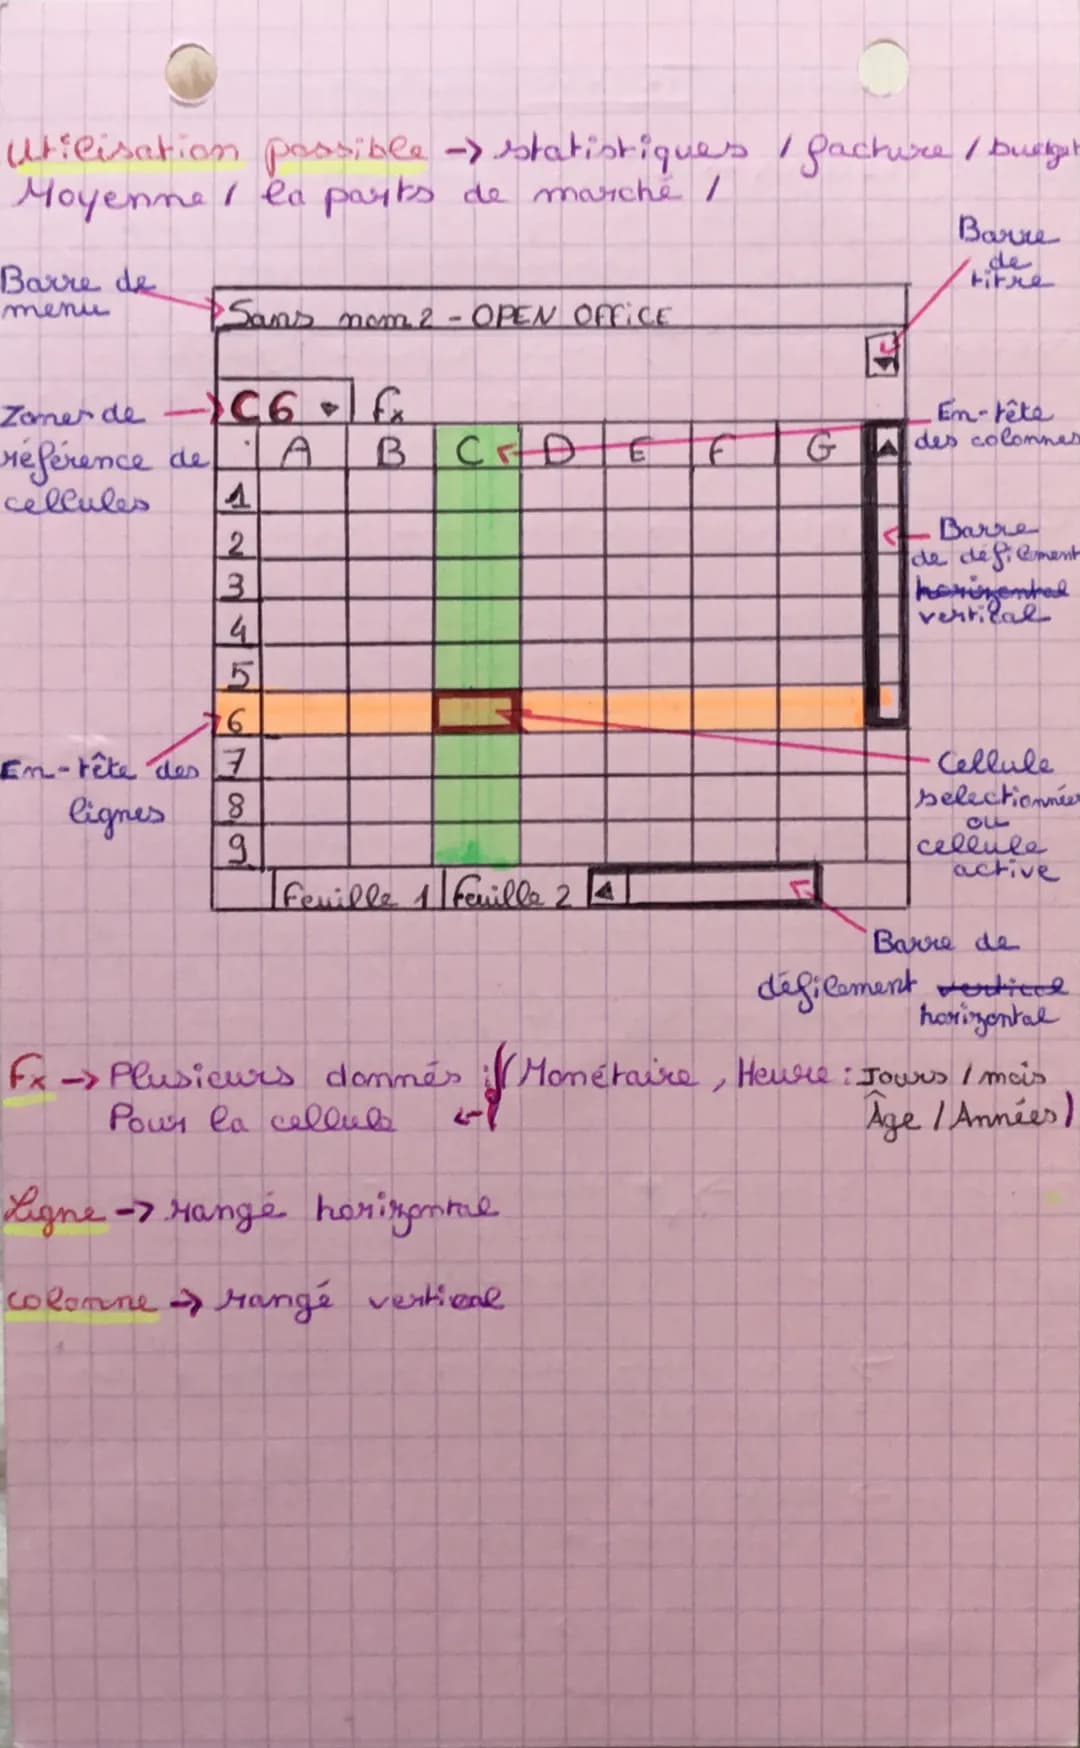 Utilisation possible -> statistiques / facture / budget
Moyenne / la parts de marché /
Barre de titre
Barre de menu
Sans nom 2 - OPEN OFFICE
Zones de référence de cellules
C6 fx
En-tête des colonnes
A B C D E F G
1
2
3
4
5
6
7
8
9
Barre de défilement horizontal vertical
En-tête des lignes
Cellule selectionnée ou cellule active
Feuille 1 Feuille 2
Barre de défilement vertical horizontal
Fx -> Plusieurs donnés : (Monétaire, Heure : Jours / mois
Pour la cellule <- Âge / Années)
Ligne -> rangé horizontal
colonne -> rangé vertical